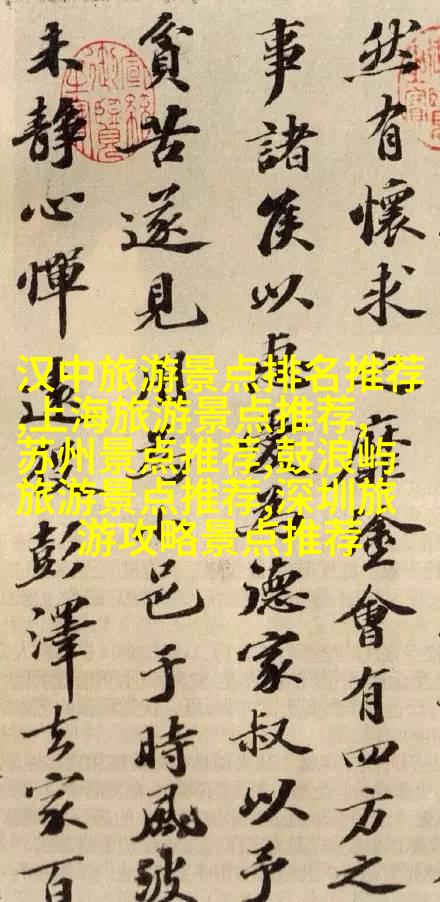 汉中旅游景点排名推荐
,上海旅游景点推荐,
苏州景点推荐,鼓浪屿
旅游景点推荐,深圳旅
游攻略景点推荐
然有懷求之靡塗會有四方之
事諸侯以惠愛為德家叔以予
貧苦遂見用為小邑于時風波
未靜心憚遠役彭澤去家百